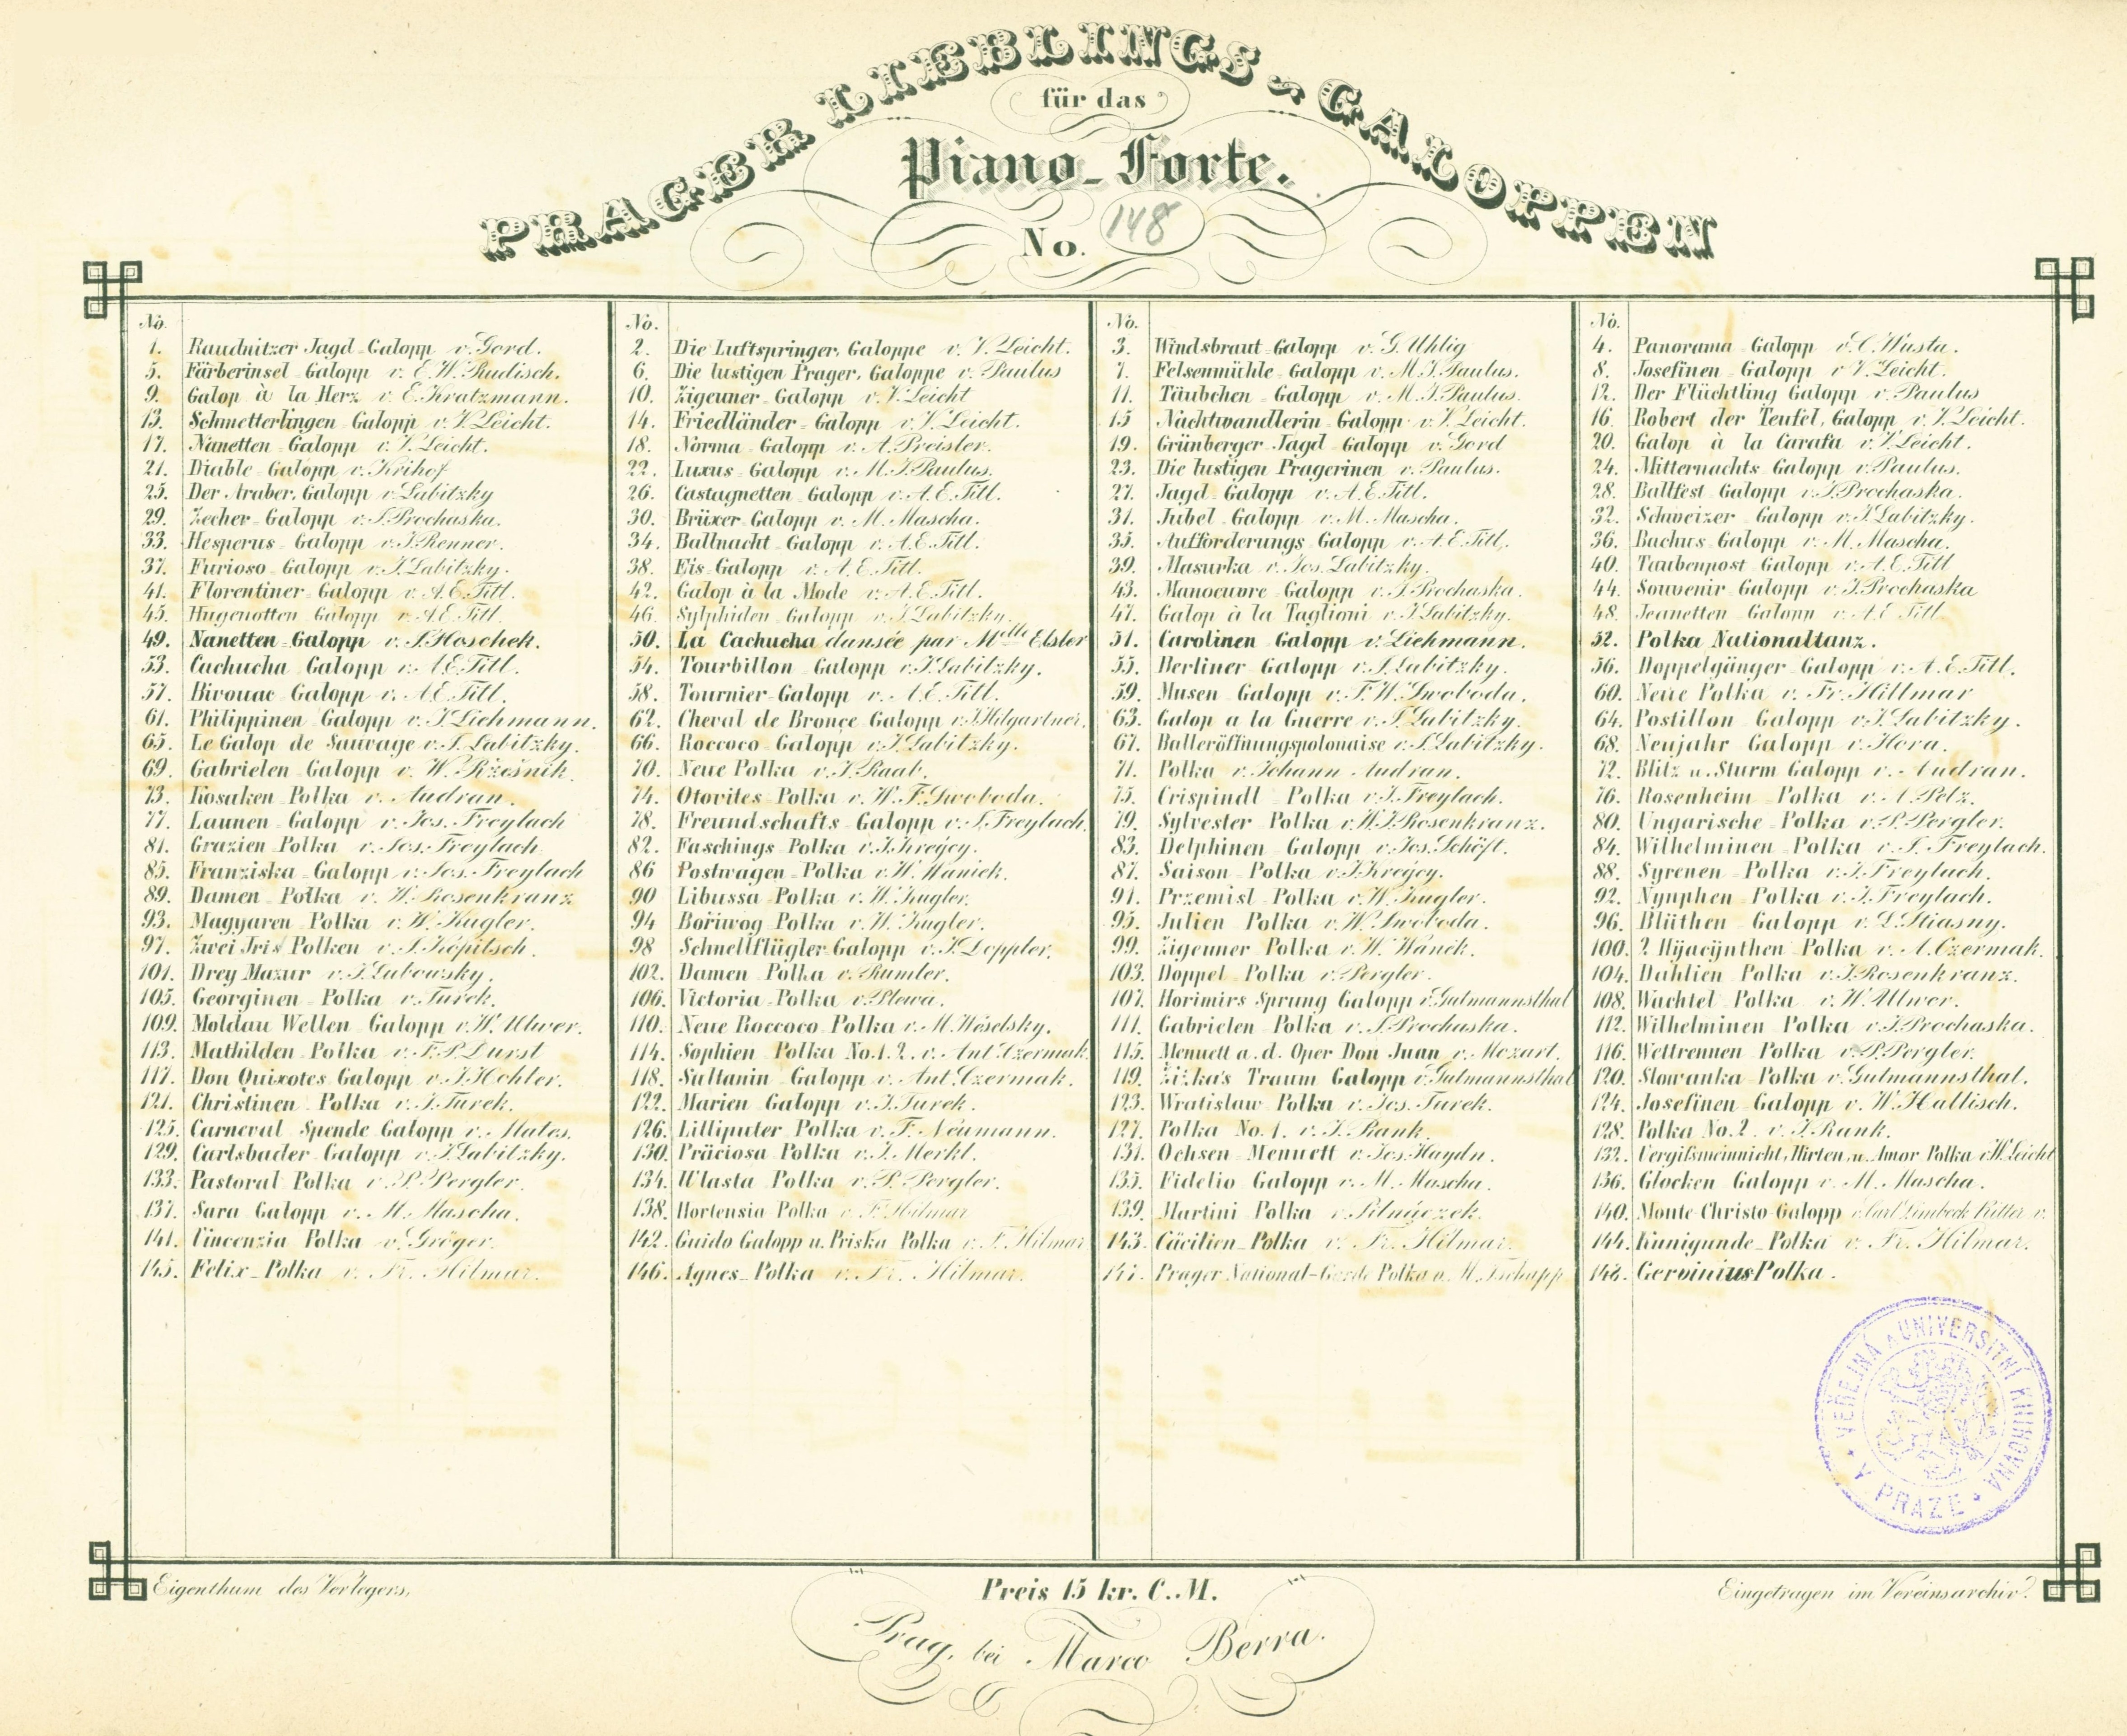 PRAGER LIEBLINGS-GALOPPEN
für das
Piano-Forte.
No. 148
No. No. No. No.
1. Raudnitzer Jagd-Galopp v. Gord. 2. Die Luftspringer, Galoppe v. V. Leicht. 3. Windsbraut-Galopp v. G. Uhlig 4. Panorama Galopp v. C. Wusta.
5. Färberinsel Galopp v. E. W. Rudisch. 6. Die lustigen Prager, Galoppe v. Paulus 7. Felsenmühle-Galopp v. M. J. Paulus. 8. Josefinen Galopp v. V. Leicht.
9. Galop à la Herz v. E. Kratzmann. 10. Zigeuner-Galopp v. V. Leicht 11. Täubchen-Galopp v. M. J. Paulus. 12. Der Flüchtling Galopp v. Paulus
13. Schmetterlingen Galopp v. V. Leicht. 14. Friedländer-Galopp v. V. Leicht. 15 Nachtwandlerin Galopp v. V. Leicht. 16. Robert der Teufel, Galopp v. V. Leicht.
17. Nanetten-Galopp v. V. Leicht. 18. Norma-Galopp v. A. Preisler. 19. Grünberger Jagd Galopp v. Gord 20. Galop à la Carafa v. V. Leicht.
21. Diable-Galopp v. Krihof 22. Luxus-Galopp v. M. J. Paulus. 23. Die lustigen Pragerinen v. Paulus. 24. Mitternachts Galopp v. Paulus.
25. Der Araber, Galopp v. Labitzky 26. Castagnetten-Galopp v. A. E. Titl. 27. Jagd-Galopp v. A. E. Titl. 28. Ballfest Galopp v. J. Prochaska.
29. Zecher-Galopp v. J. Prochaska. 30. Brüxer-Galopp v. M. Mascha. 31. Jubel Galopp v. M. Mascha. 32. Schweizer Galopp v. J. Labitzky.
33. Hesperus-Galopp v. J. Renner. 34. Ballnacht-Galopp v. A. E. Titl. 35. Aufforderungs Galopp v. A. E. Titl. 36. Bachus Galopp v. M. Mascha.
37. Furioso-Galopp v. J. Labitzky. 38. Eis-Galopp v. A. E. Titl. 39. Masurka v. Jos. Labitzky. 40. Taubenpost Galopp v. A. E. Titl
41. Florentiner-Galopp v. A. E. Titl. 42. Galop à la Mode v. A. E. Titl. 43. Manoeuvre-Galopp v. J. Prochaska. 44. Souvenir Galopp v. J. Prochaska
45. Hugenotten Galopp v. A. E. Titl 46. Sylphiden Galopp v. J. Labitzky. 47. Galop à la Taglioni v. J. Labitzky. 48. Jeanetten Galopp v. A. E. Titl
49. Nanetten-Galopp v. J. Hoschek. 50. La Cachucha dansée par Mdlle Elsler 51. Carolinen Galopp v. Liehmann. 52. Polka Nationaltanz.
53. Cachucha Galopp v. A. E. Titl. 54. Tourbillon Galopp v. J. Labitzky. 55. Berliner Galopp v. J. Labitzky. 56. Doppelgänger-Galopp v. A. E. Titl.
57. Bivouac-Galopp v. A. E. Titl. 58. Tournier-Galopp v. A. E. Titl. 59. Musen Galopp v. F. W. Swoboda. 60. Neue Polka v. Fr. Hillmar
61. Philippinen Galopp v. J. Liehmann. 62. Cheval de Bronçe Galopp v. J. Hilgartner. 63. Galop a la Guerre v. J. Labitzky. 64. Postillon Galopp v. J. Labitzky.
65. Le Galop de Sauvage v. J. Labitzky. 66. Roccoco Galopp v. J. Labitzky. 67. Balleröffnungspolonaise v. J. Labitzky. 68. Neujahr Galopp v. Hora.
69. Gabrielen Galopp v. W. Ržešnik. 70. Neue Polka v. J. Raab. 71. Polka v. Johann Audran. 72. Blitz u. Sturm Galopp v. Audran.
73. Kosaken Polka v. Audran. 74. Otovites Polka v. W. F. Swoboda. 75. Crispindl Polka v. J. Freylach. 76. Rosenheim Polka v. A. Pelz.
77. Launen-Galopp v. Jos. Freylach 78. Freundschafts-Galopp v. J. Freylach. 79. Sylvester Polka v. W. J. Rosenkranz. 80. Ungarische Polka v. P. Pergler.
81. Grazien Polka v. Jos. Freylach. 82. Faschings Polka v. J. Kregcy. 83. Delphinen Galopp v. Jos. Schöft. 84. Wilhelminen Polka v. J. Freylach.
85. Franziska-Galopp v. Jos. Freylach 86 Postwagen Polka v. W. Wanick. 87. Saison Polka v. J. Kregcy. 88. Syrenen Polka v. J. Freylach.
89. Damen Polka v. W. Rosenkranz 90 Libussa Polka v. W. Kugler. 91. Przemisl Polka v. W. Kugler. 92. Nynphen Polka v. J. Freylach.
93. Magyaren Polka v. W. Kugler. 94 Bořiwog Polka v. W. Kugler. 95. Julien Polka v. W. Swoboda. 96. Blüthen Galopp v. L. Stiasny.
97. Zwei Iris Polken v. J. Köpitsch. 98 Schnellflügler Galopp v. J. Doppler. 99. Zigeuner Polka v. W. Wanek. 100. 2 Hÿacÿnthen Polka v. A. Czermak.
101. Drey Mazur v. J. Lubowsky. 102. Damen Polka v. Rumler. 103. Doppel Polka v. Pergler. 104. Dahlien Polka v. J. Rosenkranz.
105. Georginen Polka v. Turek. 106. Victoria-Polka v. Plowa. 107. Horimirs Sprung Galopp v. Gutmannsthal 108. Wachtel Polka v. W. Ulwer.
109. Moldau Wellen Galopp v. W. Ulwer. 110. Neue Roccoco Polka v. M. Weselsky. 111. Gabrielen Polka v. J. Prochaska. 112. Wilhelminen Polka v. J. Prochaska.
113. Mathilden Polka v. F. P. Durst 114. Sophien Polka No. 1. 2. v. Ant. Czermak 115. Menuett a. d. Oper Don Juan v. Mozart. 116. Wettrennen Polka v. P. Pergler.
117. Don Quixotes Galopp v. J. Hohler. 118. Sultanin Galopp v. Ant. Czermak. 119. Žižka's Traum Galopp v. Gutmannsthal 120. Slowanka Polka v. Gutmannsthal.
121. Christinen Polka v. J. Turek. 122. Marien Galopp v. J. Turek. 123. Wratislaw Polka v. Jos. Turek. 124. Josefinen Galopp v. W. Hallisch.
125. Carneval Spende Galopp v. Males. 126. Lilliputer Polka v. F. Neumann. 127. Polka No. 1. v. J. Rank. 128. Polka No. 2. v. J. Rank.
129. Carlsbader Galopp v. J. Labitzky. 130. Präciosa Polka v. J. Merkl. 131. Ochsen Menuett v. Jos. Haydn. 132. Vergißmeinnicht, Hirten, u. Amor Polka v. W. Leicht
133. Pastoral Polka v. P. Pergler. 134. Wlasta Polka v. P. Pergler. 135. Fidelio Galopp v. M. Mascha. 136. Glocken Galopp v. M. Mascha.
137. Sara Galopp v. M. Mascha. 138. Hortensia Polka v. F. Hilmar 139. Martini Polka v. Pilnÿczek. 140. Monte-Christo-Galopp v. Carl Limbeck Ritter v.
141. Vincenzia Polka v. Gröger. 142. Guido Galopp u. Priska Polka v. F. Hilmar 143. Cäcilien-Polka v. Fr. Hilmar. 144. Kunigunde-Polka v. Fr. Hilmar.
145. Felix-Polka v. Fr. Hilmar. 146. Agnes-Polka v. Fr. Hilmar. 147. Prager National-Garde Polka v. M. Tschapp 148. Gervinius Polka.
VEŘEJNÁ A UNIVERSITNÍ KNIHOVNA
V PRAZE
Eigenthum des Verlegers. Preis 15 kr. C. M. Eingetragen im Vereinsarchiv.
Prag, bei Marco Berra.